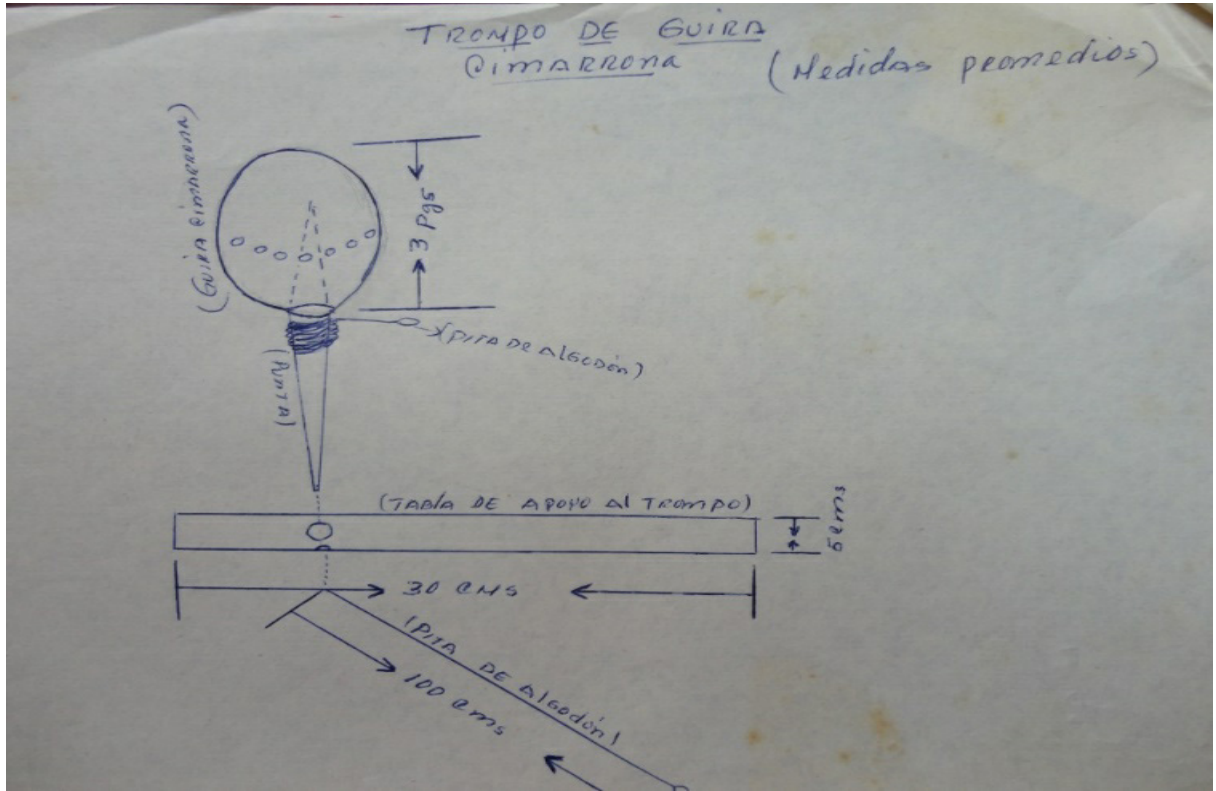 TROMPO DE GUIRA
CIMARRONA (Medidas promedios)
(GUIRA CIMARRONA)
3 Pgs
(PITA DE AlGODón)
(PUNTA)
(TABlA DE APOYO Al TROMPO)
5 cms
30 CMS
(PITA DE AlGODón)
100 cms